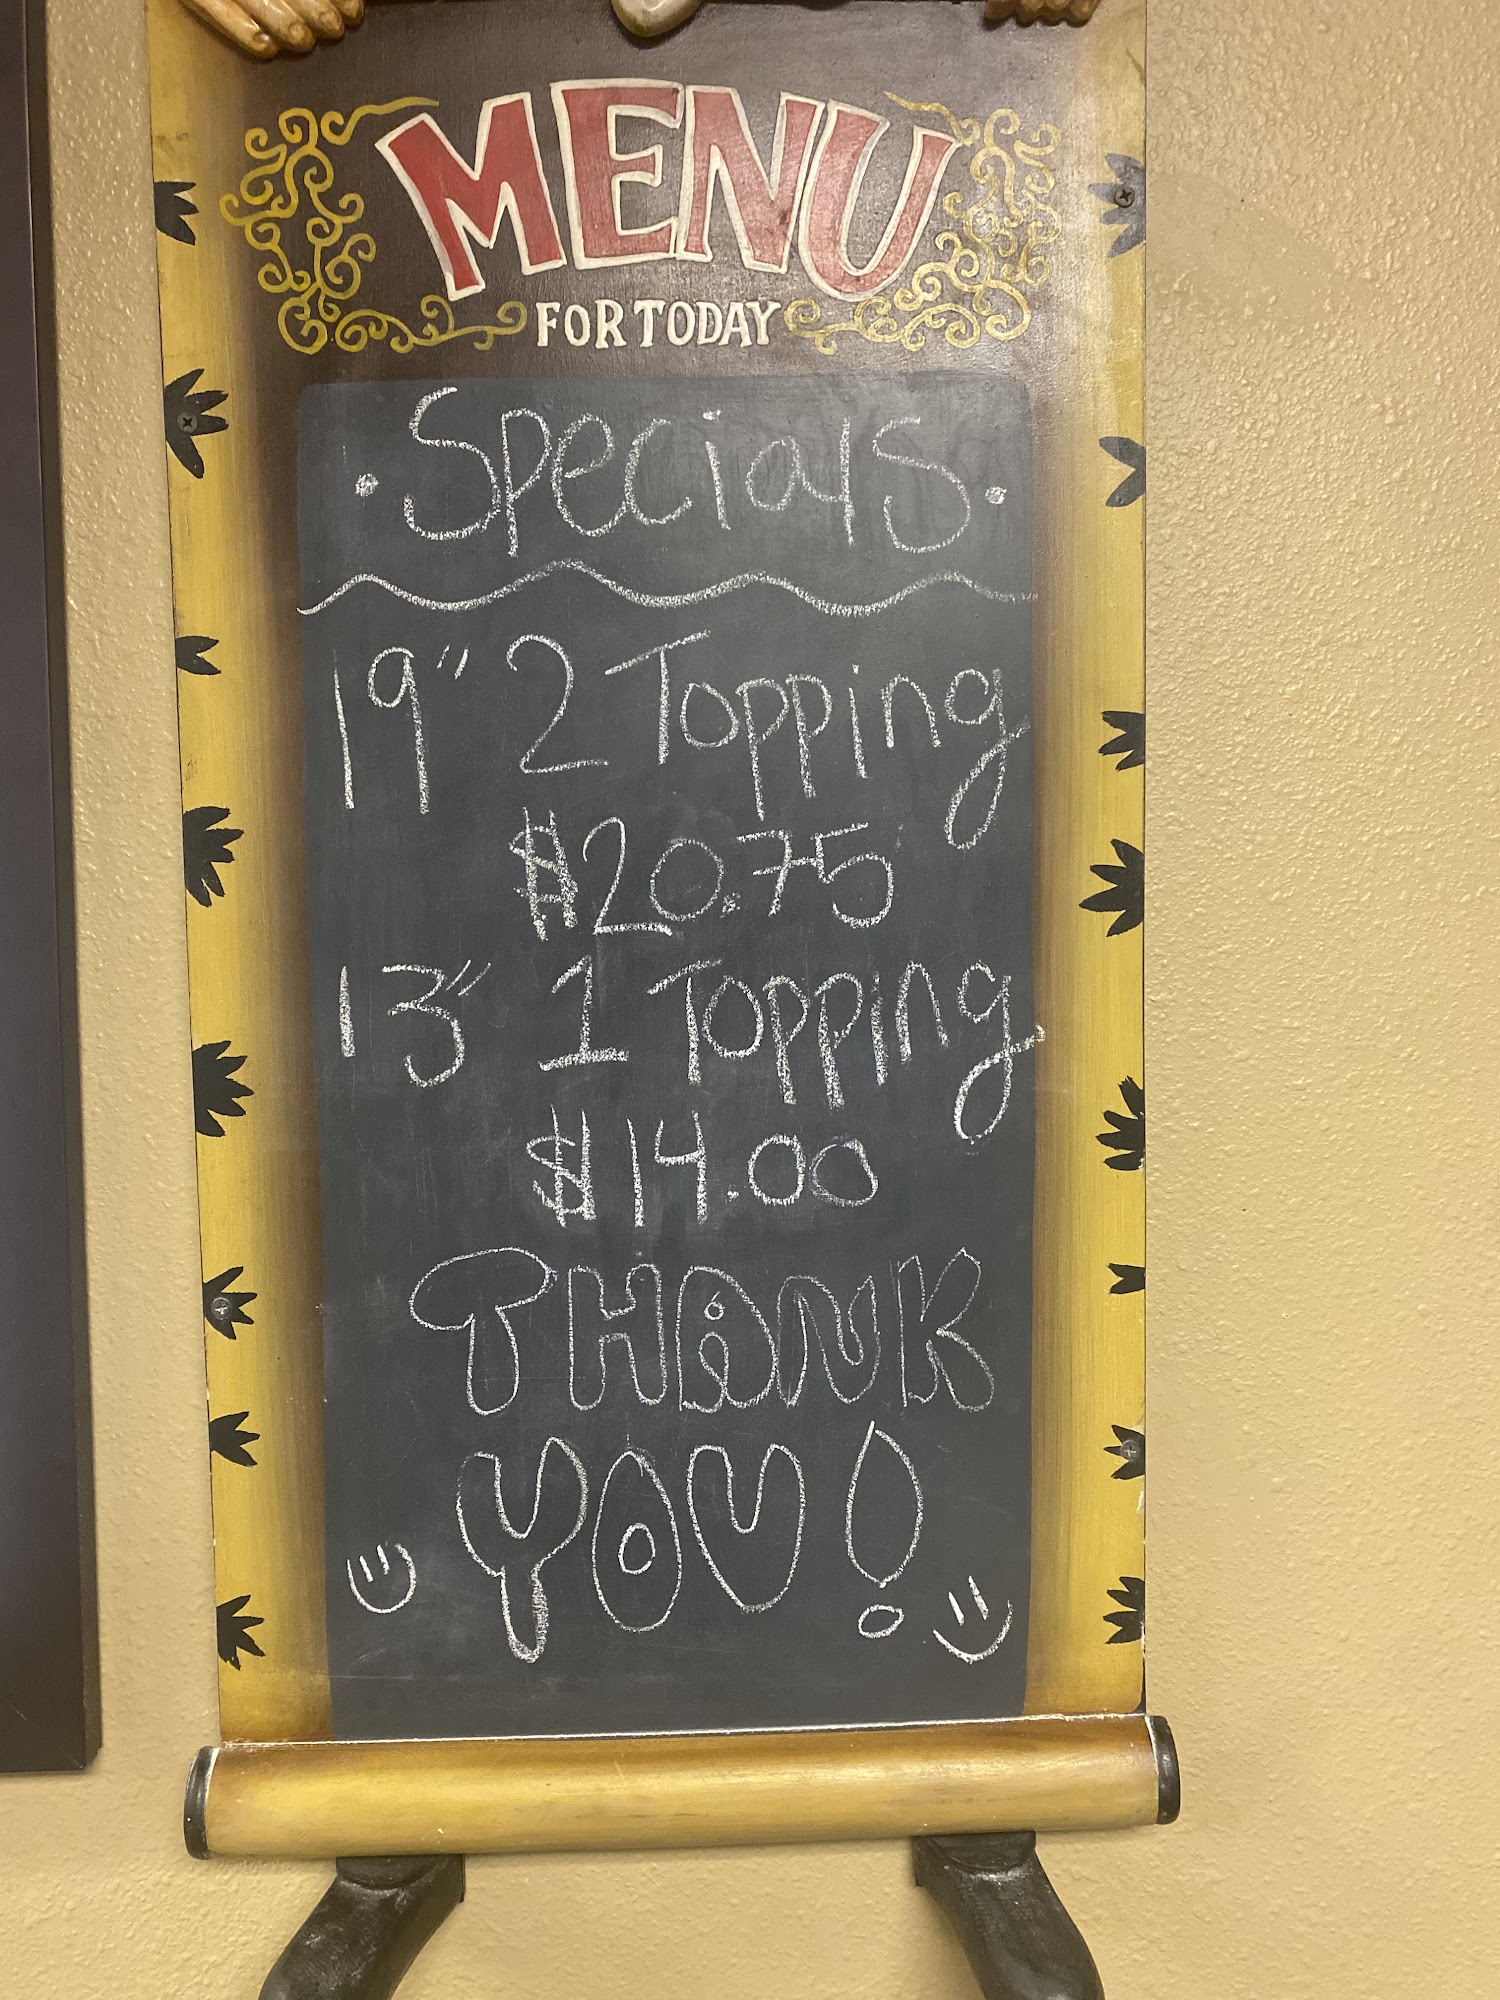 MENU
FOR TODAY
• Specials •
19" 2 Topping
$20.75
13" 1 Topping
$14.00
THANK
YOU!